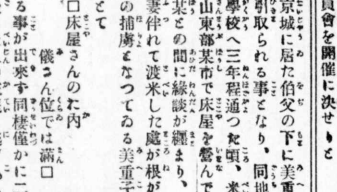 員會を開催に決せりと
京城に居た伯父の下に美重
引取られる事となり、同地
學校へ三年程通つた頃、米
山東部某市で床屋を營んで
某との間に縁談が纒まり、
妻伴れて渡米した處が根が
の捕虜となつてゐる美重子
とて
□床屋さんのお内
儀さん位では滿□
る事が出來ず同棲僅かに二